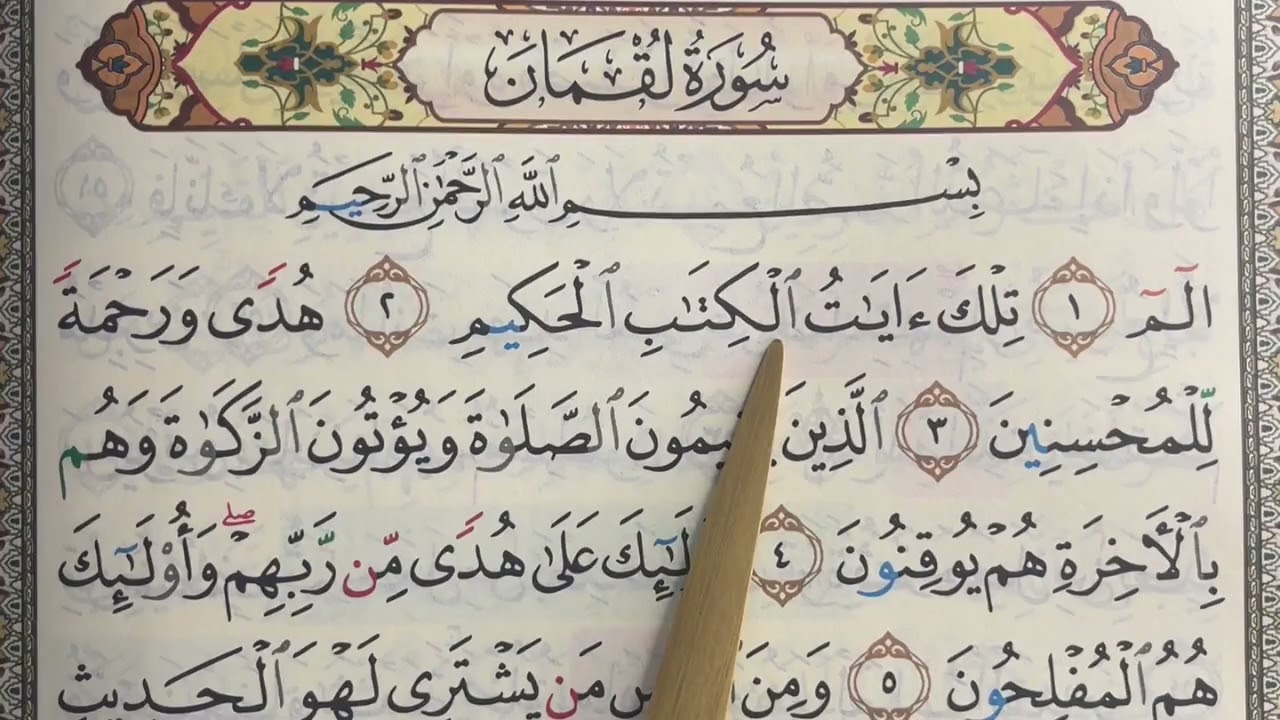 سُورَةُ لُقْمَانَ
بِسْمِ ٱللَّهِ ٱلرَّحْمَٰنِ ٱلرَّحِيمِ
الٓمٓ ١ تِلْكَ ءَايَٰتُ ٱلْكِتَٰبِ ٱلْحَكِيمِ ٢ هُدًى وَرَحْمَةً
لِّلْمُحْسِنِينَ ٣ ٱلَّذِينَ يُقِيمُونَ ٱلصَّلَوٰةَ وَيُؤْتُونَ ٱلزَّكَوٰةَ وَهُم
بِٱلْأَخِرَةِ هُمْ يُوقِنُونَ ٤ أُو۟لَٰٓئِكَ عَلَىٰ هُدًى مِّن رَّبِّهِمْ ۖ وَأُو۟لَٰٓئِكَ
هُمُ ٱلْمُفْلِحُونَ ٥ وَمِنَ مَن يَشْتَرِى لَهْوَ ٱلْحَدِيثِ